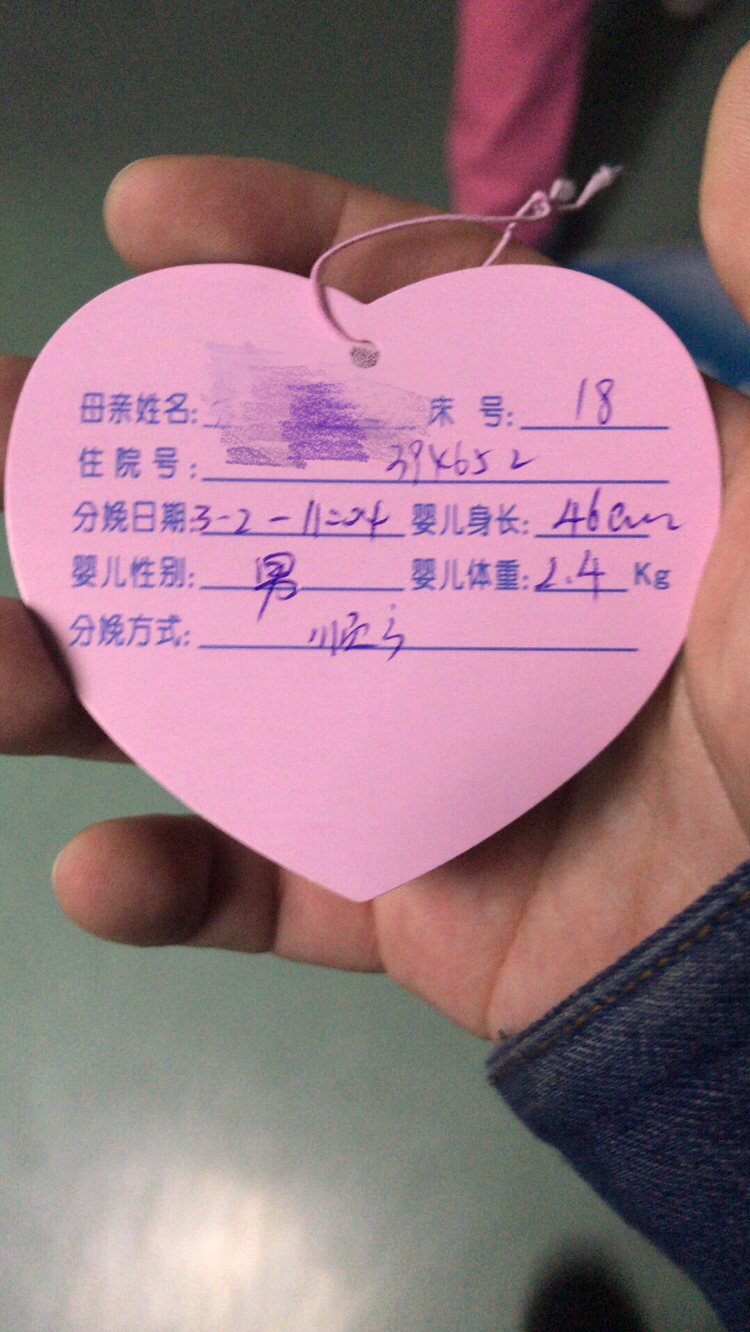 母亲姓名: 床号: 18
住院号: 394652
分娩日期: 3-2-11=04 婴儿身长: 46cm
婴儿性别: 男 婴儿体重: 2.4 Kg
分娩方式: 顺产